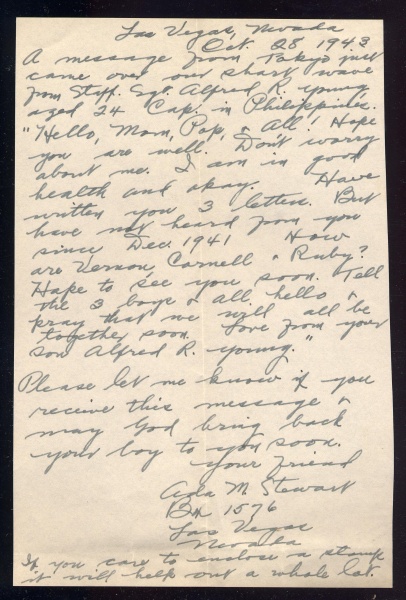 Las Vegas, Nevada
Oct. 28 1943
A message from Tokyo just
came over our short wave
from Staff. Sgt. Alfred R. Young,
aged 24 Cap. in Philippines.
"Hello, Mom, Pop, & All! Hope
you are well. Don't worry
about me. I am in good
health and okay. Have
written you 3 letters. But
have not heard from you
since Dec. 1941 How
are Vernon, Cornell & Ruby?
Hope to see you soon. Tell
the 3 boys & all hello &
pray that we will all be
together soon. Love from your
son Alfred R. Young."
Please let me know if you
receive this message &
may God bring back
your boy to you soon.
Your friend
Ada M. Stewart
Bx 1576
Las Vegas
Nevada
If you care to enclose a stamp
it will help out a whole lot.